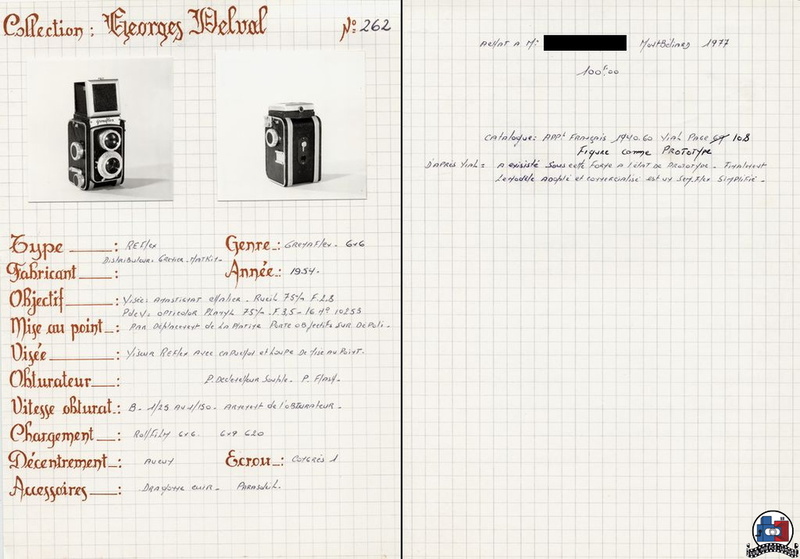 Collection : Georges Delval Nº 262
Type : REflex
Genre : GrenaFlex - 6x6
Distributeur: Grenier.Natkin-
Fabricant :
Année : 1954.
Objectif : Visée: Anastigmat Atelier. Rueil 75m/m F.2.8
PdeV. Opticolor Planyl 75m/m. F.3,5-16 Nº 10253
Mise au point : PAR Déplacement de La Platine Porte Objectifs SUR DéPoli-
Visée : Viseur REFlex Avec capuchon et Loupe De Mise Au Point.
Obturateur : P. Declencheur Souple. P. Flash-
Vitesse obturat. : B. 1/25 Au 1/150. Armement de l'Obturateur.
Chargement : RollFilm 6x6. 6x9 620
Décentrement : Aucun
Ecrou : Congrès 1
Accessoires : Dragonne cuir. Parasoleil.
AChAT A Mr: Montbéliard 1977
100F.00
Catalogue: APPt Français 1940.60 Vial Page 108
Figure comme Prototype
D'APRÈS Vial: A existé Sous cette Forme A l'état de Prototype. Finalement
Le modèle Adopté et commercialisé est un Semflex Simplifié.